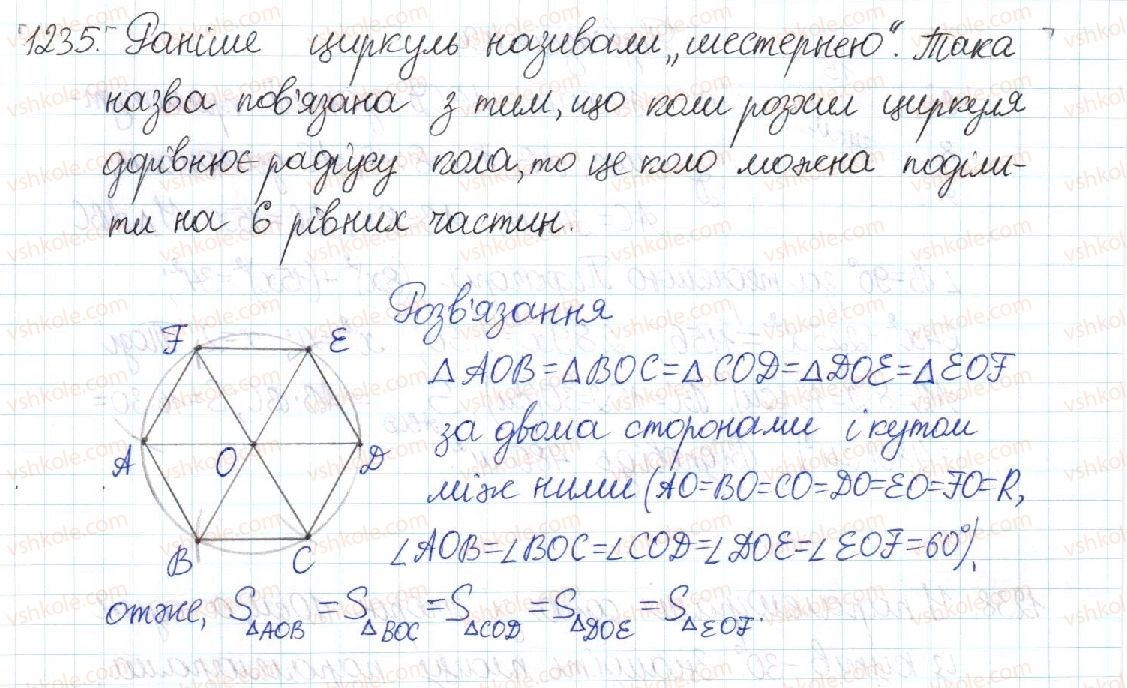 1235. Раніше циркуль називали „шестернею“. Така
назва пов'язана з тим, що коли розхил циркуля
дорівнює радіусу кола, то це коло можна поділи-
ти на 6 рівних частин.
Розв'язання
F E
A O D
B C
△AOB=△BOC=△COD=△DOE=△EOF
за двома сторонами і кутом
між ними (AO=BO=CO=DO=EO=FO=R,
∠AOB=∠BOC=∠COD=∠DOE=∠EOF=60°),
отже, S△AOB=S△BOC=S△COD=S△DOE=S△EOF.